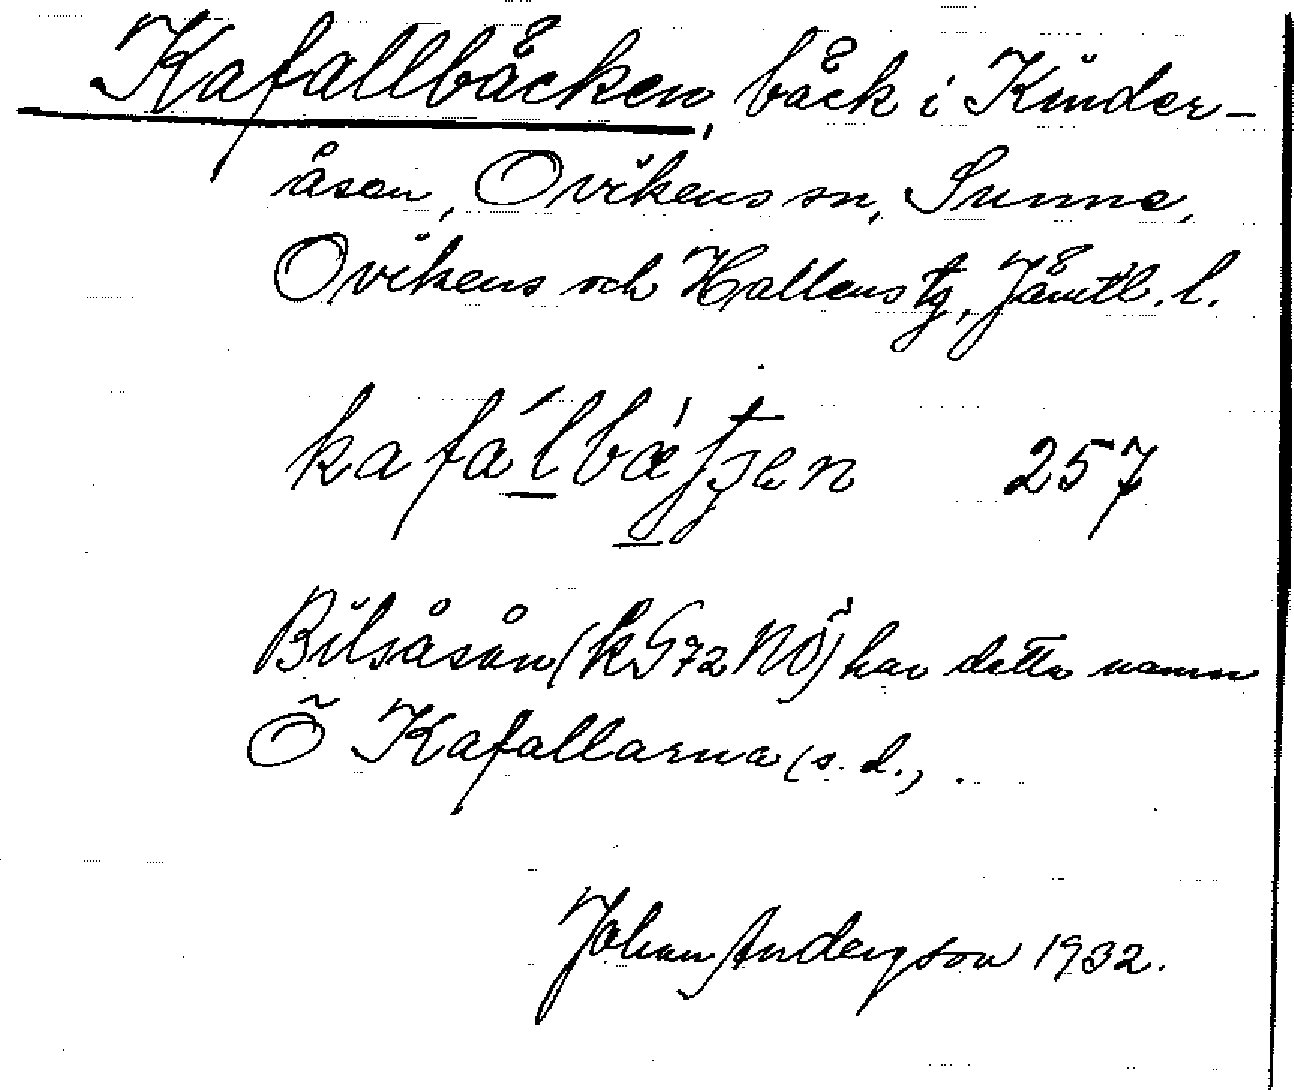 Kafallbäcken, bäck i Kinder-
åsen, Ovikens sn, Sunne,
Ovikens och Hallens tg, Jämtl. l.
kafálbætʃen 257
Bilsåsån (k 572 NÖ) har detta namn
Ö Kafallarna (s. d.).
Johan Andersson 1932.